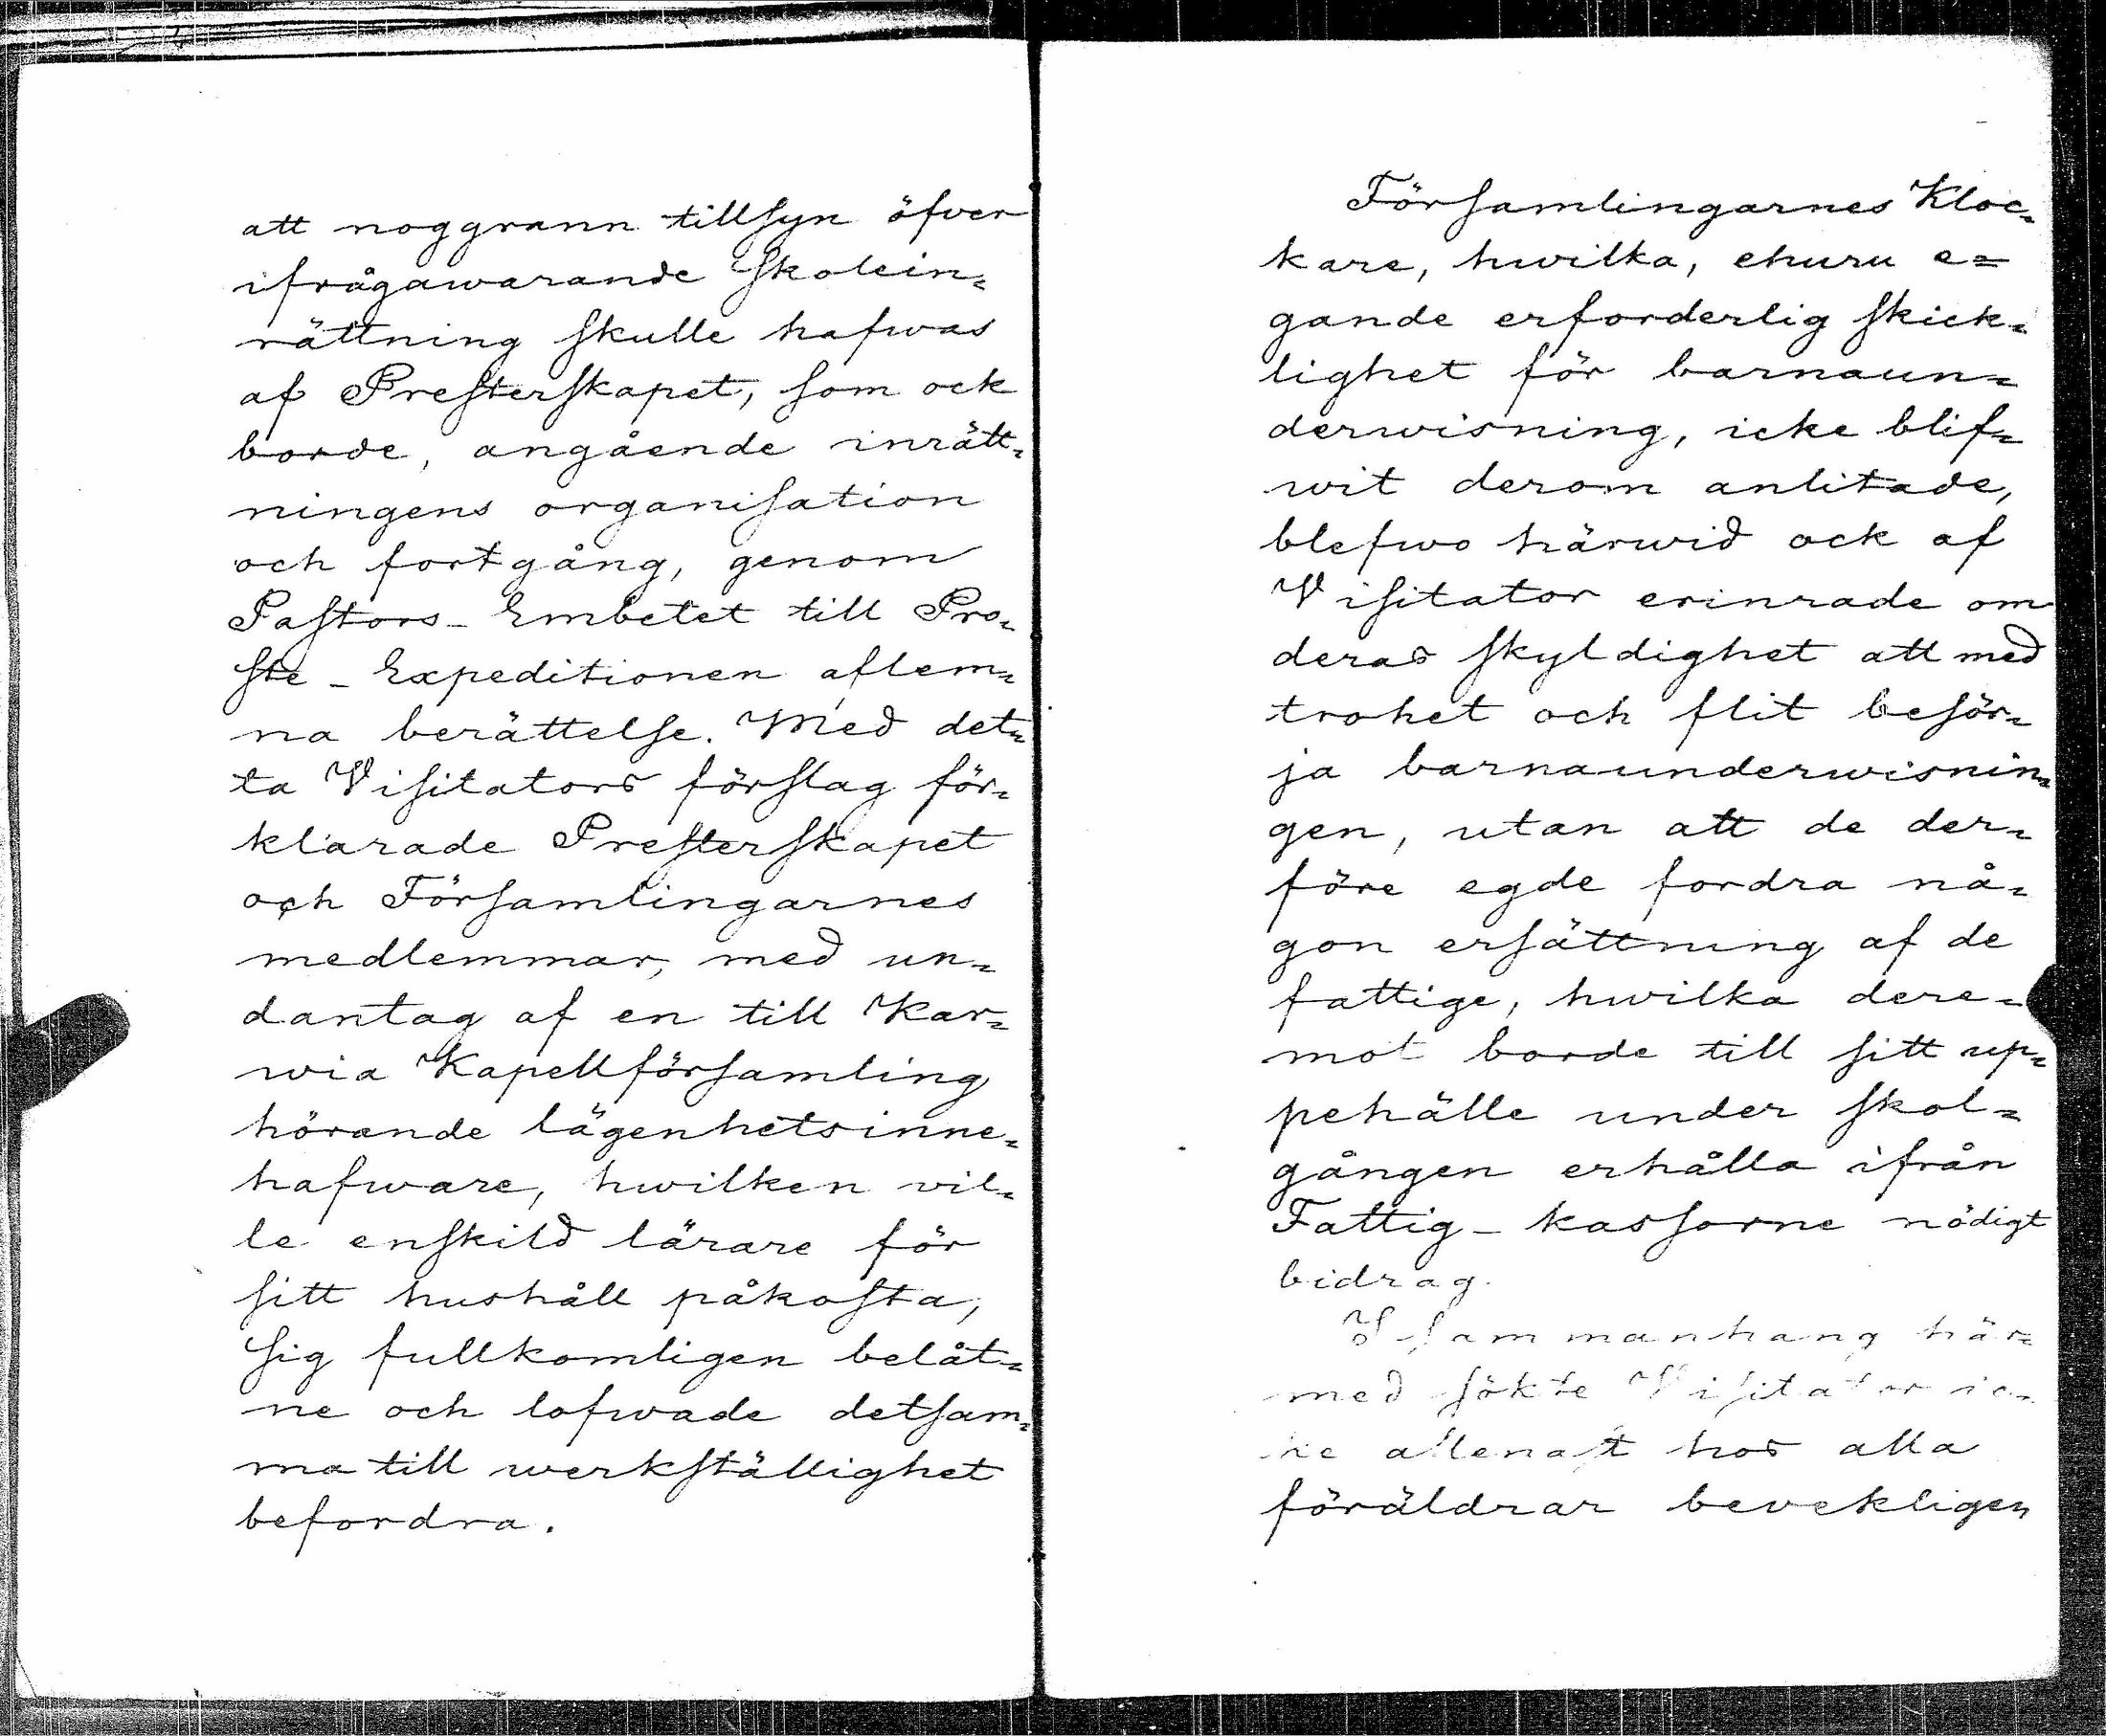 att noggrann tillsyn öfver
ifrågawarande Skolein=
rättning skulle hafwas
af Presterskapet, som ock
borde, angående inrätt=
ningens organisation
och fortgång, genom
Pastors-Embetet till Pro=
ste-Expeditionen aflem=
na berättelse. Med det=
ta Visitators förslag för=
klarade Presterskapet
och Församlingarnes
medlemmar, med un=
dantag af en till Kar=
wia Kapellförsamling
hörande lägenhetsinne=
hafware, hwilken vil=
le enskild lärare för
sitt hushåll påkosta,
sig fullkomligen belåt=
ne och lofwade detsam=
ma till werkställighet
befordra.
Församlingarnes Kloc=
kare, hwilka, ehuru e=
gande erforderlig skick=
lighet för barnaun=
derwisning, icke blif=
wit derom anlitade,
blefwo härwid ock af
Visitator erinrade om
deras skyldighet att med
trohet och flit besör=
ja barnaunderwisnin=
gen, utan att de der=
före egde fordra nå=
gon ersättning af de
fattige, hwilka dere=
mot borde till sitt up=
pehälle under skol=
gången erhålla ifrån
Fattig-kassorne nödigt
bidrag.
I sammanhang här=
med sökte Visitator ic=
ke allenast hos alla
föräldrar bevekligen